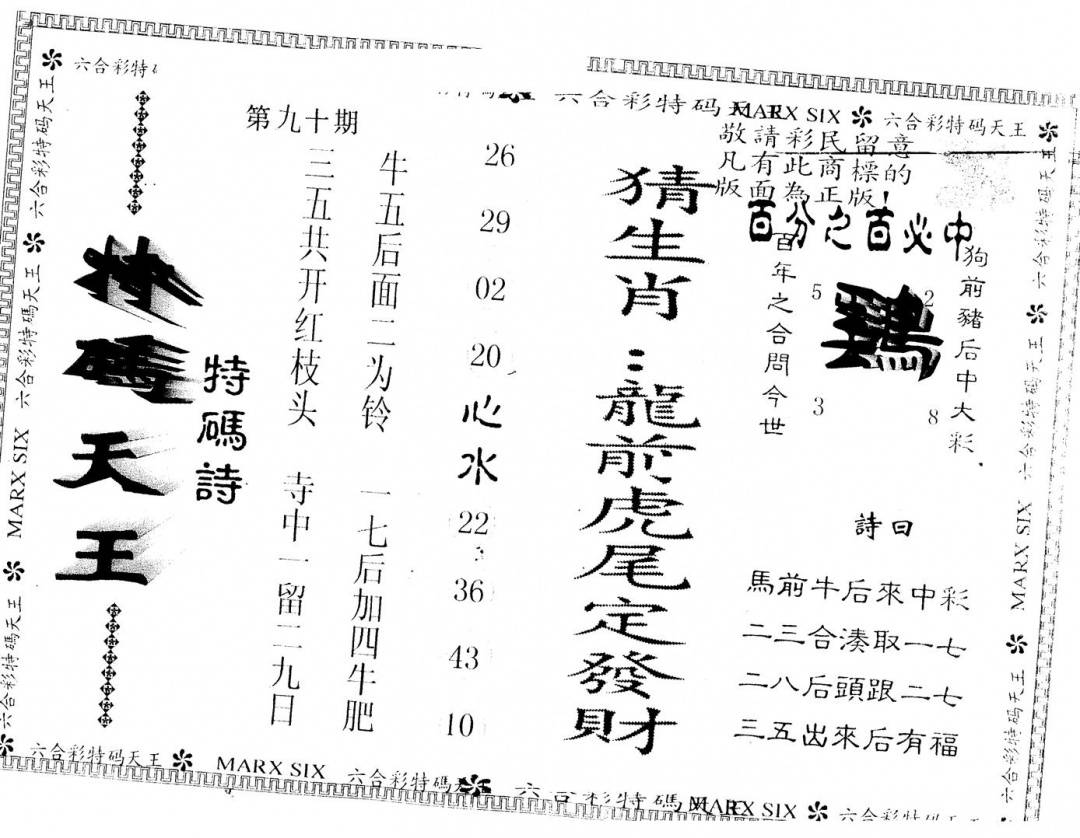 六合彩特
六合彩特码天王
MARX SIX
六合彩特码天王
六合彩特码天王
六合彩特码天王
MARX SIX
六合彩特码
六合彩特码
MARX SIX
六合彩特码天王
MARX SIX
六合彩特码天王
六合彩特码天王
MARX SIX
六合彩特码天王
特碼天王
特碼詩
第九十期
牛五后面二为铃
一七后加四牛肥
三五共开红枝头
寺中一留二九日
26
29
02
20
心水
22
36
43
10
猜生肖:龍前虎尾定發財
敬請彩民留意
凡有此商標的
版面為正版!
百分之百必中
狗前豬后中大彩.
百年之合問今世
5
2
3
8
詩曰
馬前牛后來中彩
二三合湊取一七
二八后頭跟二七
三五出來后有福